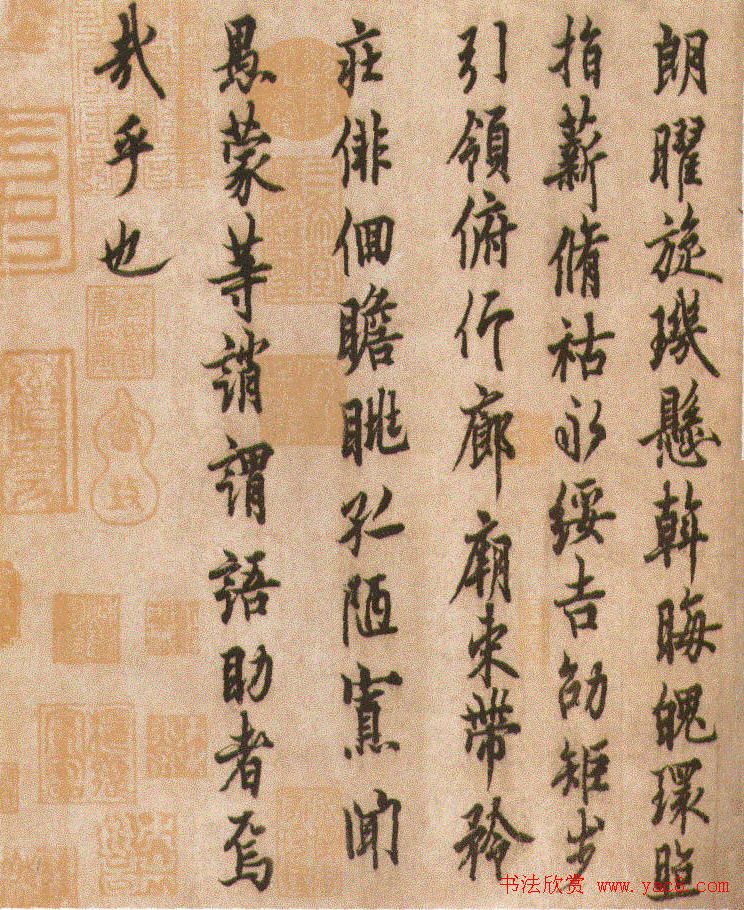 朗曜旋璣懸斡晦魄環照
指薪脩祜永綏吉劭矩步
引領俯仰廊廟束帶矜
莊俳佪瞻眺孤陋寡聞
愚蒙等誚謂語助者焉
哉乎也
书法欣赏 www.yac8.com